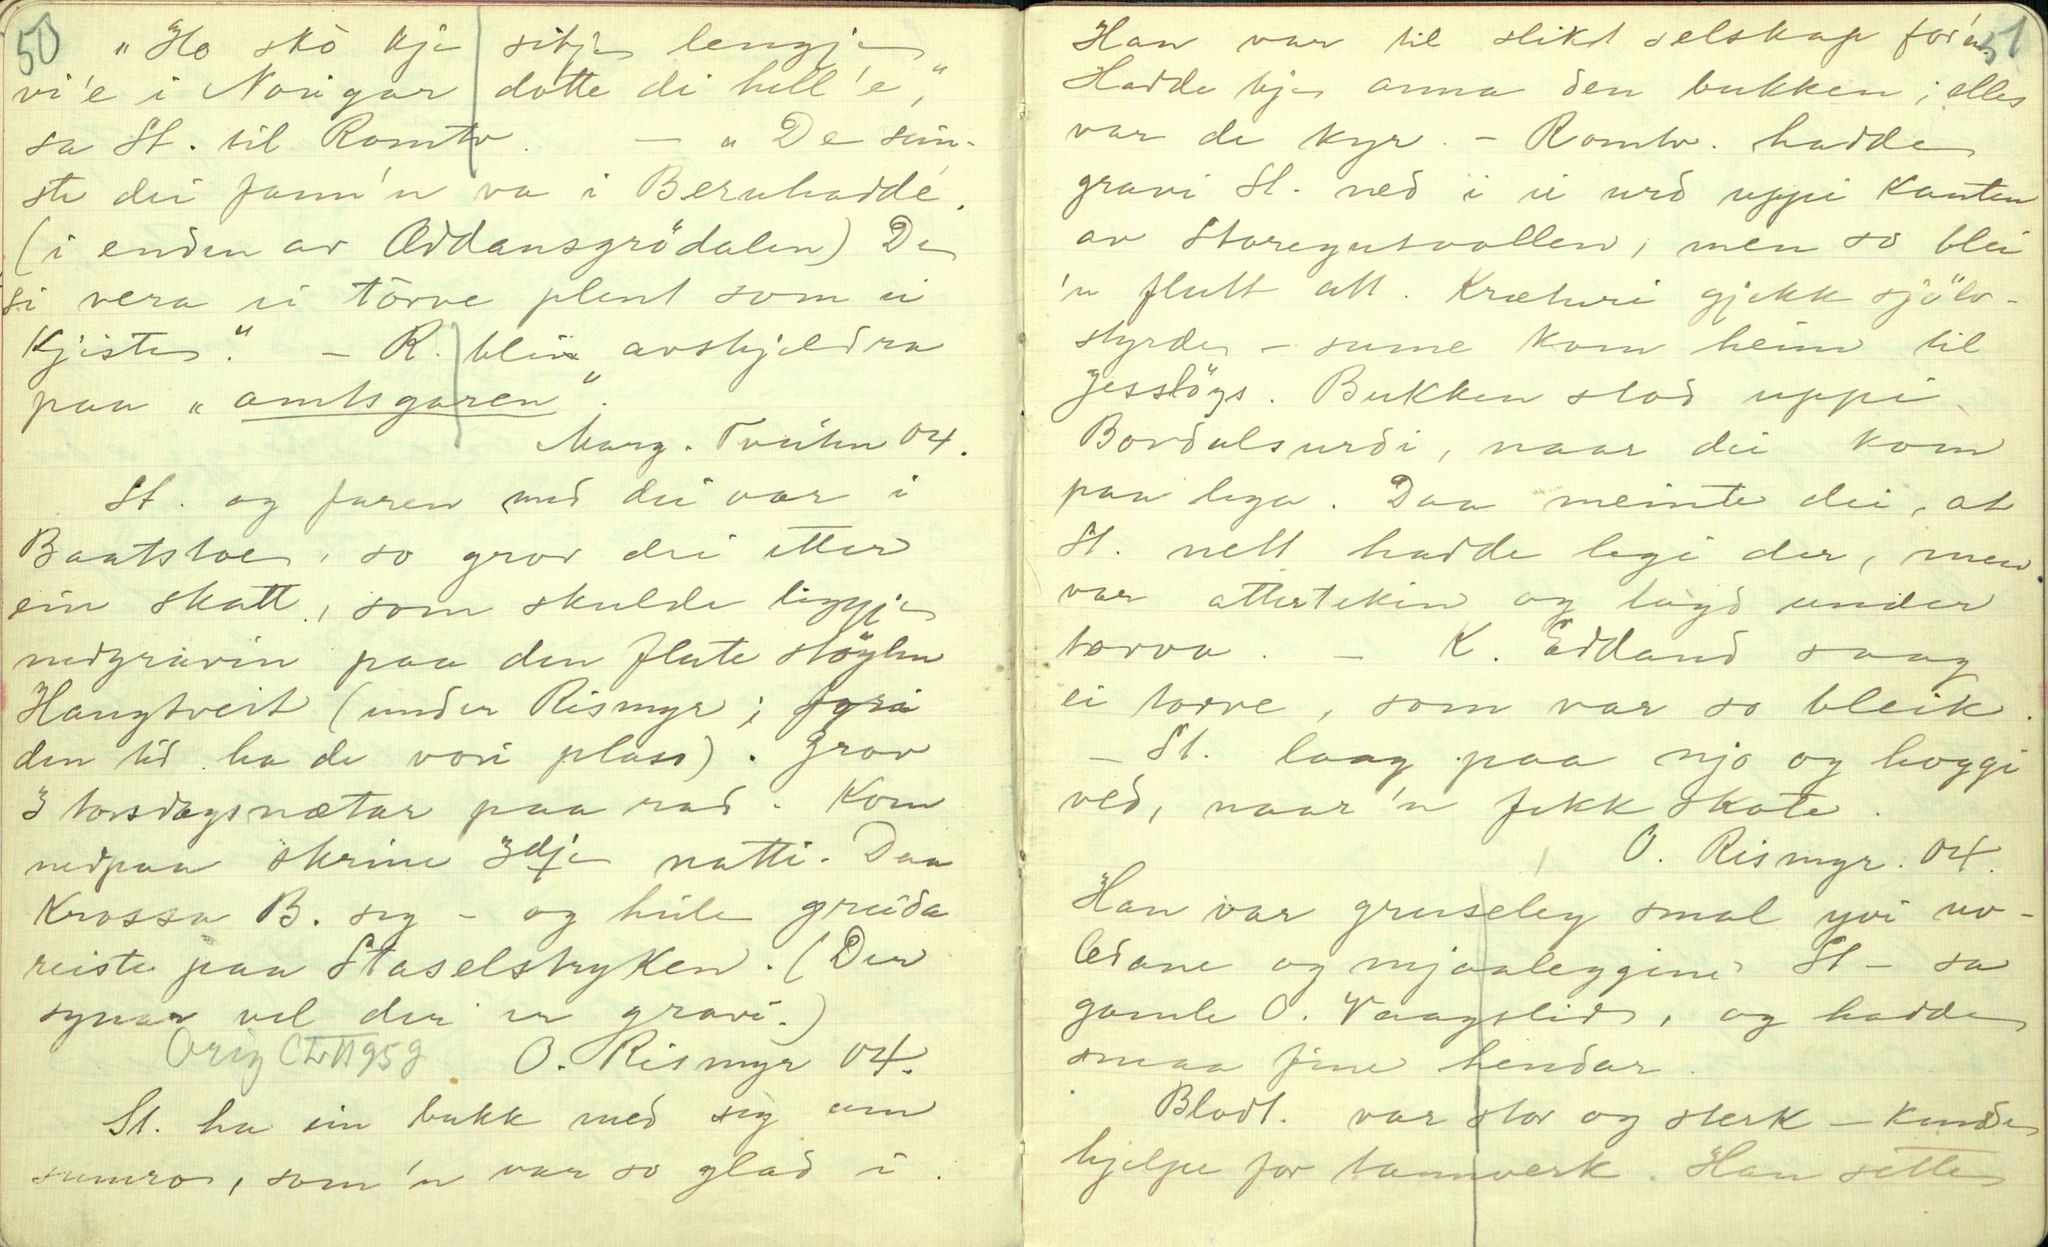 50
"Ho skò kje sitje lengje
vi'e i Norigar dotte di hell'e",
sa St. til Romtv. — "De sein-
ste dei fann'n va i Bernhadde.
(i enden av Øddansgrödalen) De
si vera ei törve plent som ei
Kjiste." — R. blei avskjeldra
paa "amtsgaren".
Marg. Tveiten 04.
St. og faren med dei var i
Baatstoe, so grov dei etter
ein skatt, som skulde liggje
nedgravin paa den flate støylen
Haugtveit (under Rismyr; fyri
den tid ha de vori plass). Grov
3 torsdagsnætar paa rad. Kom
nedpaa skrine 3dje natti. Daa
Krossa B. seg — og heile greida
reiste paa Staselstryken. (Der
synar vel dei er gravi.)
Orig O. Rismyr 04.
St. ha ein bukk med seg um
sumro, som'n var so glad i.
51
Han var til slikt selskap for'n.
Hadde kje anna den bukken; elles
var de kyr. — Romtv. hadde
gravi St. ned i ei urd uppi Kanten
av Storegutvollen, men so blei
'n flutt att. Kræturi gjekk sjölv-
styrde — sume kom heim til
Jesslögs. Bukken stod uppi
Bordalsurdi, naar dei kom
paa lega. Daa meinte dei, at
St. nett hadde legi der, men
var attertekin og lagd under
torva. — K. Eddand saag
ei torve, som var so bleik.
— St. laag paa njo og hoggi
ved, naar'n fekk skote.
O. Rismyr. 04.
Han var gruseleg smal yvi uv-
ledane og mjaaleggine St — sa
gamle O. Vaagslid, og hadde
smaa fine hendar.
Blodt. var stor og sterk — Kunde
hjelpe for tannverk. Han sette